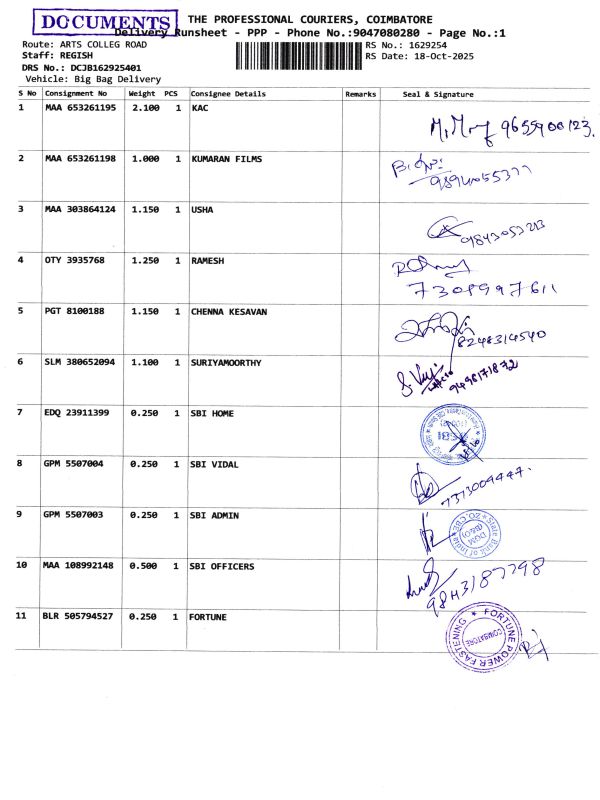 DOCUMENTS
THE PROFESSIONAL COURIERS, COIMBATORE
Delivery Runsheet - PPP - Phone No.:9047080280 - Page No.:1
Route: ARTS COLLEG ROAD
RS No.: 1629254
Staff: REGISH
RS Date: 18-Oct-2025
DRS No.: DCJB162925401
Vehicle: Big Bag Delivery
S No Consignment No Weight PCS Consignee Details Remarks Seal & Signature
1 MAA 653261195 2.100 1 KAC
9655900123.
2 MAA 653261198 1.000 1 KUMARAN FILMS
3 MAA 303864124 1.150 1 USHA
9843053213
4 OTY 3935768 1.250 1 RAMESH
7308997611
5 PGT 8100188 1.150 1 CHENNA KESAVAN
8248314540
6 SLM 380652094 1.100 1 SURIYAMOORTHY
9498171872
7 EDQ 23911399 0.250 1 SBI HOME
8 GPM 5507004 0.250 1 SBI VIDAL
9 GPM 5507003 0.250 1 SBI ADMIN
State Bank of India
DGM
(B&O)
ZO, CBE
10 MAA 108992148 0.500 1 SBI OFFICERS
9843187798
11 BLR 505794527 0.250 1 FORTUNE
FORTUNE POWER FASTENING
COIMBATORE